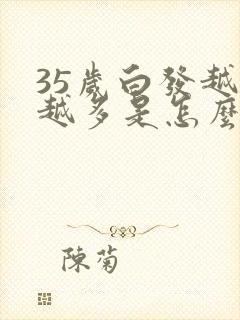 35歲白發越
越多是怎麼
陳菊